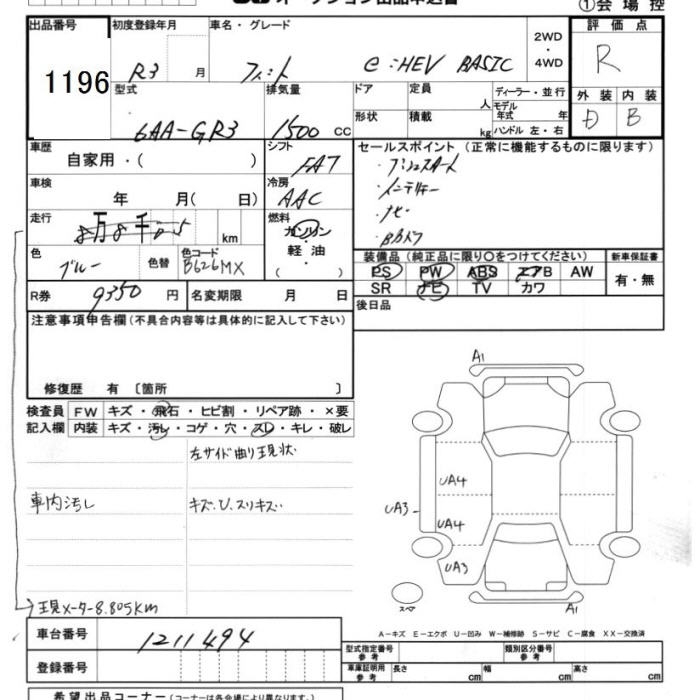 ①会場控
出品番号 初度登録年月 車名・グレード 2WD・4WD 評価点
1196 R3 月 フィット e:HEV BASIC R
型式 排気量 ドア 定員 人 ディーラー・並行 外装 内装
6AA-GR3 1500 CC 形状 積載 kg モデル年式 年 D B
ハンドル 左・右
車歴 シフト セールスポイント (正常に機能するものに限ります)
自家用・( ) FAT ・プッシュスタート
車検 冷房 ・インテリキー
年 月( 日) AAC ・ナビ
走行 燃料 ・Bカメラ
8万8千05 km ガソリン・軽油・( )
色 色替 色コード 装備品 (純正品に限り〇をつけてください) 新車保証書
ブルー B626MX PS PW ABS エアB AW 有・無
SR ナビ TV カワ
R券 9350 円 名変期限 月 日 後日品
注意事項申告欄(不具合内容等は具体的に記入して下さい)
修復歴 有 〔箇所 〕
検査員 FW キズ・飛石・ヒビ割・リペア跡・×要
記入欄 内装 キズ・汚レ・コゲ・穴・スレ・キレ・破レ
左サイド曲り現状
車内汚レ キズ.U.スリキズ
現メーター8.805km
A1
UA4
UA3
UA4
UA3
スペア
A1
A-キズ E-エクボ U-凹み W-補修跡 S-サビ C-腐食 XX-交換済
車台番号 1211494
型式指定番号 参考 類別区分番号 参考
登録番号 車庫証明用 参考 長さ cm 幅 cm 高さ cm
希望出品コーナー(コーナーは各会場により異なります。)